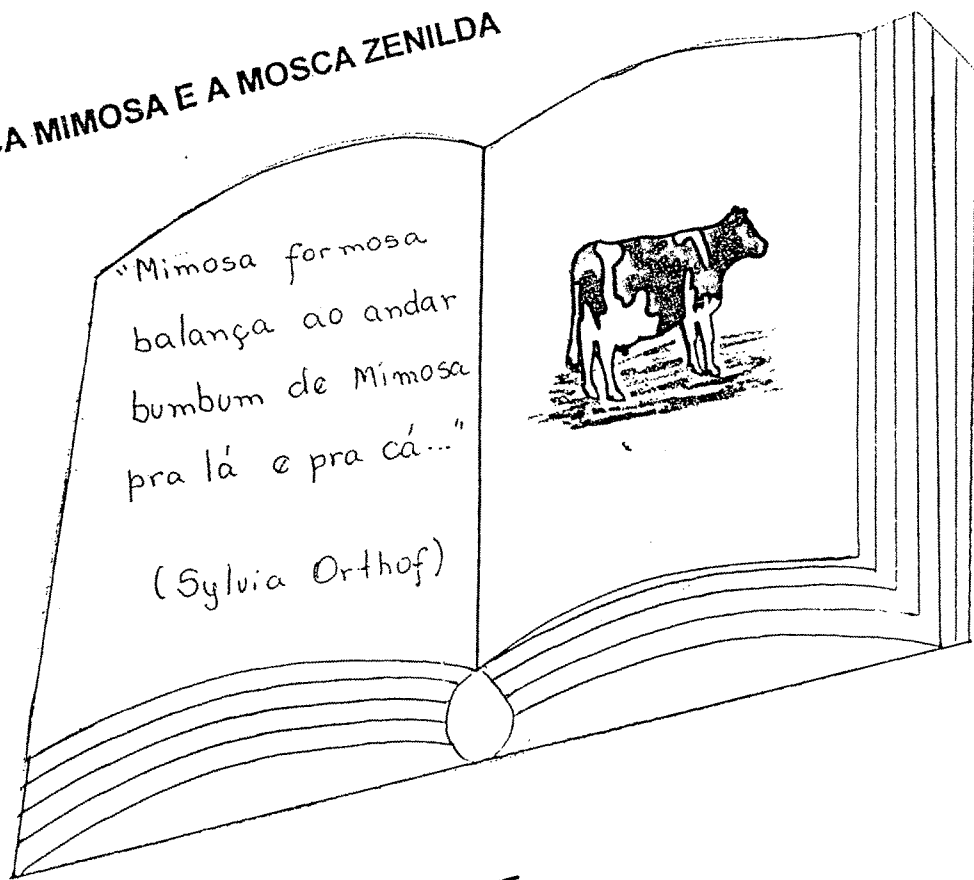 CA MIMOSA E A MOSCA ZENILDA
"Mimosa formosa
balança ao andar
bumbum de Mimosa
pra lá e pra cá..."
(Sylvia Orthof)